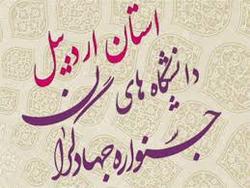 استان اردبیل
دانشگاه های
جشنواره جهادگران